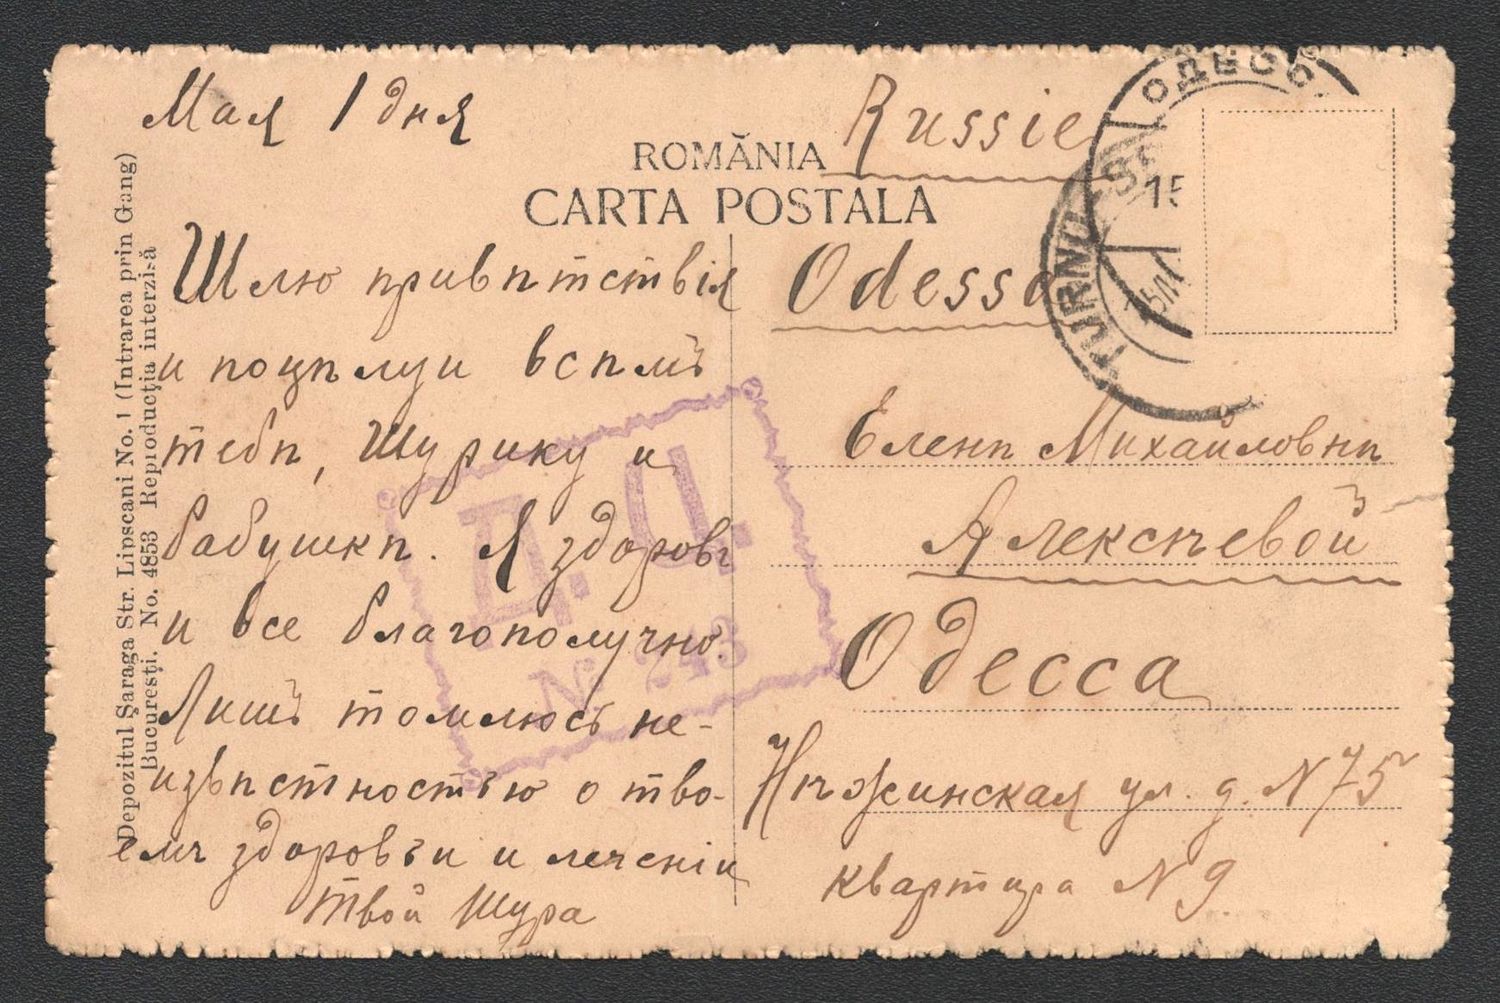 Мая 1 дня
Шлю привѣтствія
и поцѣлуи всѣмъ
тебѣ, Шурику и
бабушкѣ. Я здоровъ
и все благополучно.
Лишь томлюсь не-
извѣстностью о тво-
емъ здоровьи и леченіи
Твой Шура
ROMÂNIA
CARTA POSTALA
Russie
Odessa
Еленѣ Михайловнѣ
Алексѣевой
Одесса
Нѣжинская ул. д. N 75
квартира N 9.
Depozitul Şaraga Str. Lipscani No. 1 (Intrarea prin Gang)
Bucureşti. No. 4853 Reproducţia interzi-ă
Д. Ц.
№ 243
ОДЕССА
15
TURNU